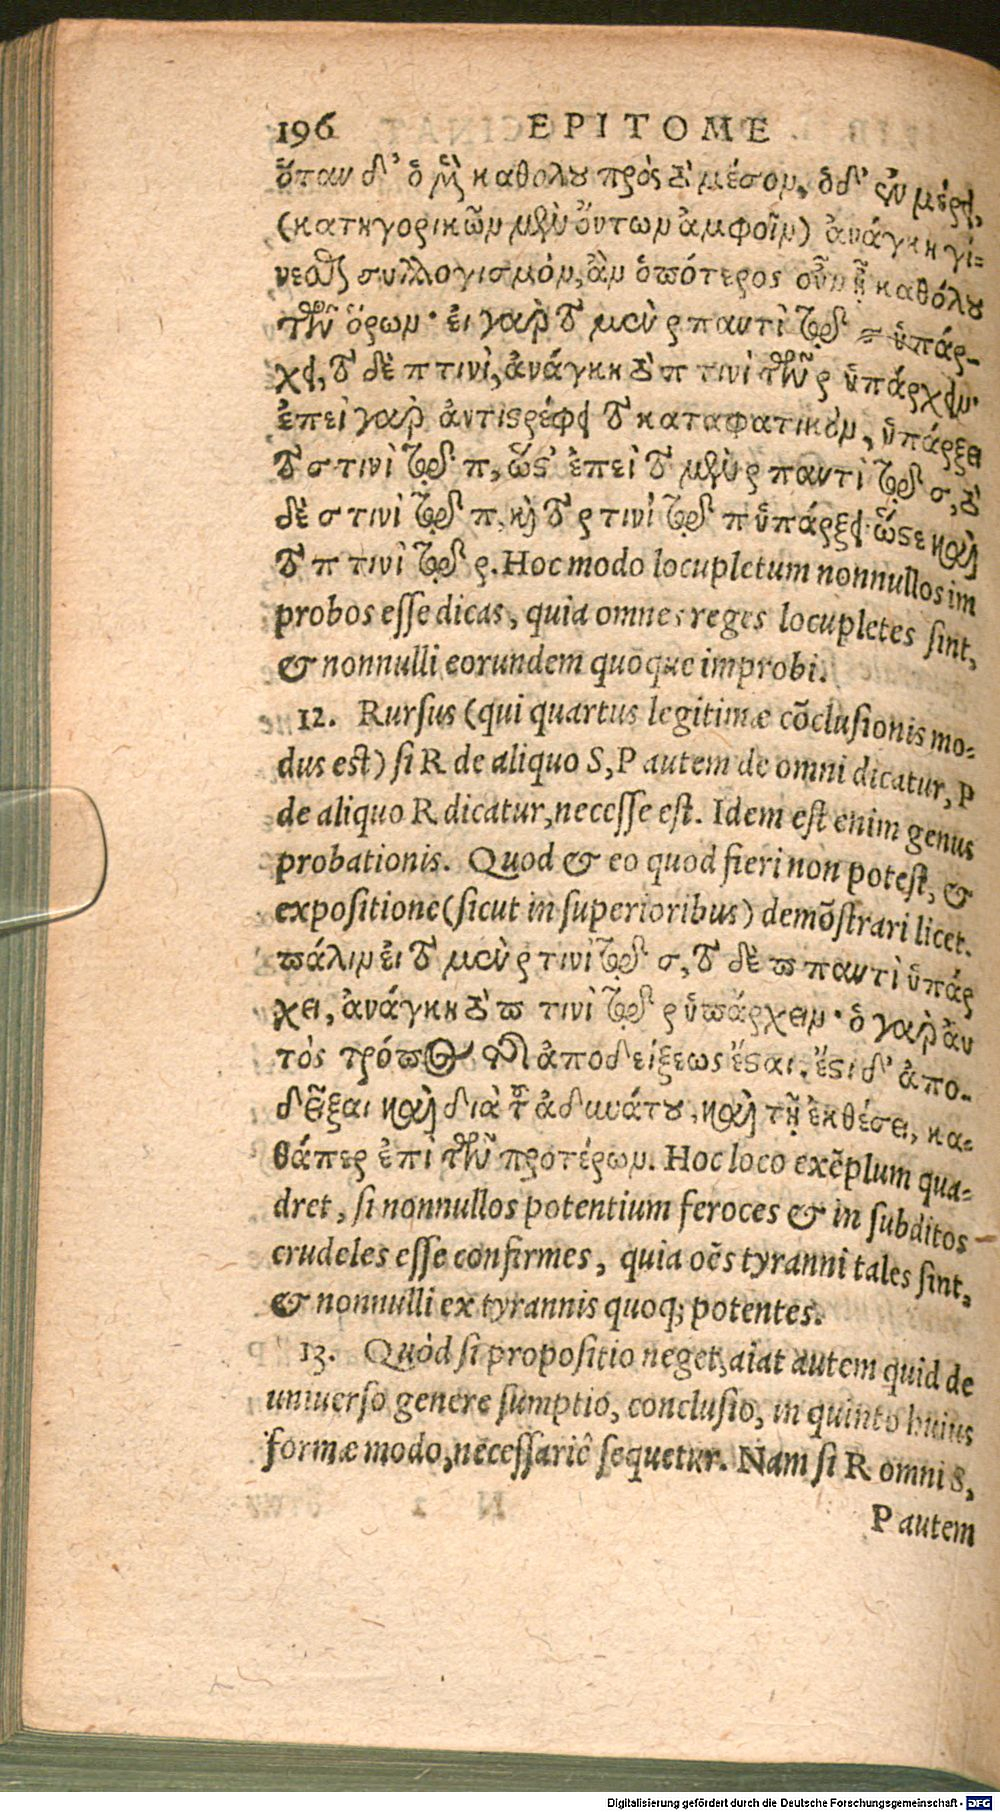 196 EPITOME
ὅταν δ' ὁ μὲν καθόλου πρὸς τὸ μέσον, ὁ δ' ἐν μέρει,
(κατηγορικῶν μὲν ὄντων ἀμφοῖν) ἀνάγκη γί-
νεσθαι συλλογισμὸν, ἂν ὁπότερος οὖν ᾖ καθόλου
τῶν ὅρων· εἰ γὰρ τὸ μὲν ρ παντὶ τῷ σ ὑπάρ-
χει, τὸ δὲ π τινὶ, ἀνάγκη τὸ π τινὶ τῶν ρ ὑπάρχειν·
ἐπεὶ γὰρ ἀντιστρέφει τὸ καταφατικὸν, ὑπάρξει
τὸ σ τινὶ τῷ π, ὥστ' ἐπεὶ τὸ μὲν ρ παντὶ τῷ σ, τὸ
δὲ σ τινὶ τῷ π, καὶ τὸ ρ τινὶ τῷ π ὑπάρξει· ὥστε καὶ
τὸ π τινὶ τῷ ρ. Hoc modo locupletum nonnullos im
probos esse dicas, quia omnes reges locupletes sint,
& nonnulli eorundem quoque improbi.
12. Rursus (qui quartus legitimæ cõclusionis mo-
dus est) si R de aliquo S, P autem de omni dicatur, P
de aliquo R dicatur, necesse est. Idem est enim genus
probationis. Quod & eo quod fieri non potest, &
expositione (sicut in superioribus) demõstrari licet.
πάλιν εἰ τὸ μὲν ρ τινὶ τῷ σ, τὸ δὲ π παντὶ ὑπάρ
χει, ἀνάγκη τὸ π τινὶ τῷ ρ ὑπάρχειν· ὁ γὰρ ἀυ
τὸς τρόπος τῆς ἀποδείξεως ἔσται. ἔστι δ' ἀπο-
δεῖξαι καὶ διὰ τοῦ ἀδυνάτου, καὶ τῇ ἐκθέσει, κα-
θάπερ ἐπὶ τῶν προτέρων. Hoc loco exẽplum qua-
dret, si nonnullos potentium feroces & in subditos
crudeles esse confirmes, quia oẽs tyranni tales sint,
& nonnulli ex tyrannis quoq; potentes.
13. Quòd si propositio neget, aiat autem quid de
uniuerso genere sumptio, conclusio, in quinto huius
formæ modo, necessariè sequetur. Nam si R omni S,
P autem
Digitalisierung gefördert durch die Deutsche Forschungsgemeinschaft - DFG